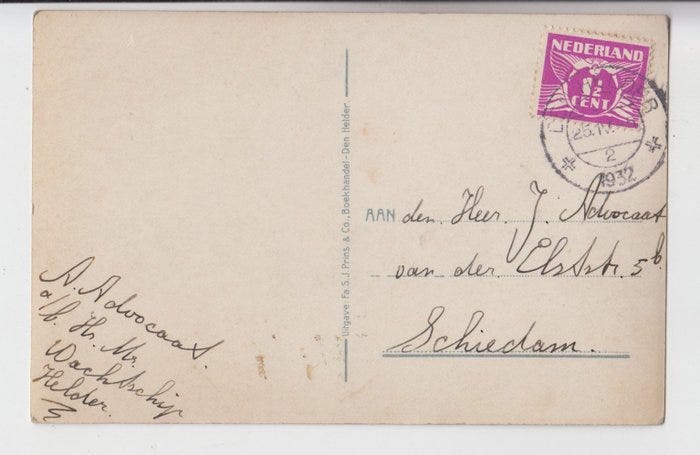 NEDERLAND
1½
CENT
25.IV
2
1932
AAN den Heer J. Advocaat
van der Elststr. 5b.
Schiedam.
Uitgave: Fa. S. J. Prins & Co., Boekhandel - Den Helder.
A. Advocaat.
a/b. Hr. Mr.
Wachtschip
Helder.